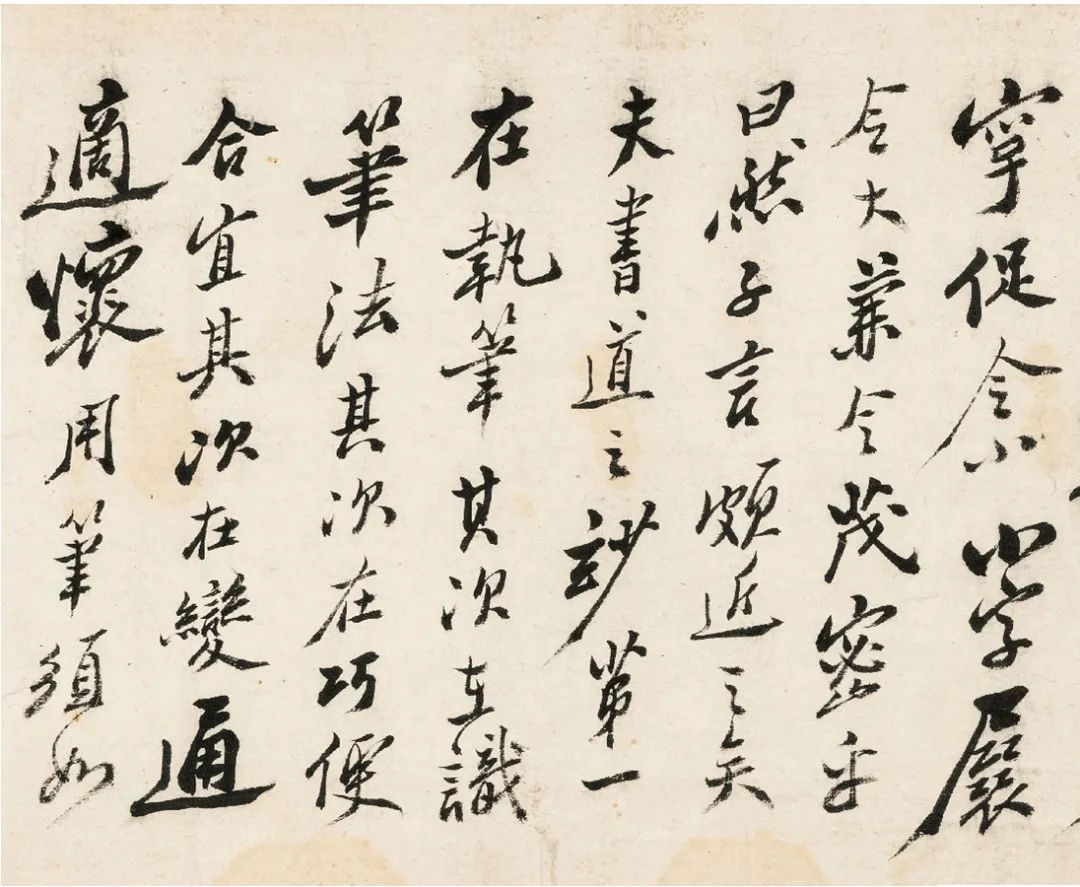 寧促令小小字展
令大兼令茂密乎
曰然子言頗近之矣
夫書道之玅第一
在執筆其次在識
筆法其次在巧便
合宜其次在變通
適懷用筆須如